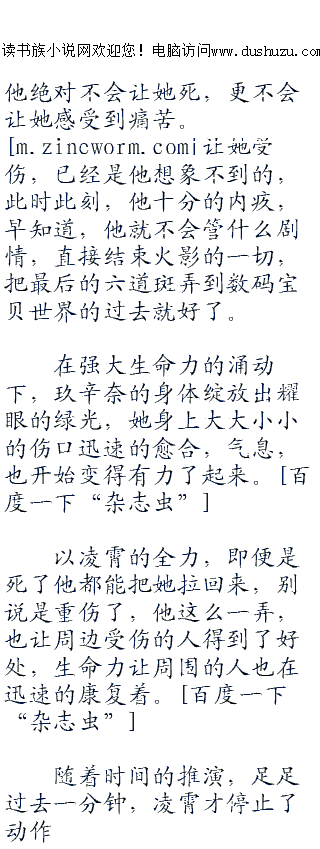 读书族小说网欢迎您！电脑访问www.dushuzu.com
他绝对不会让她死，更不会
让她感受到痛苦。
[m.zincworm.com|让她受
伤，已经是他想象不到的，
此时此刻，他十分的内疚，
早知道，他就不会管什么剧
情，直接结束火影的一切，
把最后的六道斑弄到数码宝
贝世界的过去就好了。
在强大生命力的涌动
下，玖辛奈的身体绽放出耀
眼的绿光，她身上大大小小
的伤口迅速的愈合，气息，
也开始变得有力了起来。[百
度一下“杂志虫”]
以凌霄的全力，即便是
死了他都能把她拉回来，别
说是重伤了，他这么一弄，
也让周边受伤的人得到了好
处，生命力让周围的人也在
迅速的康复着。[百度一下
“杂志虫”]
随着时间的推演，足足
过去一分钟，凌霄才停止了
动作